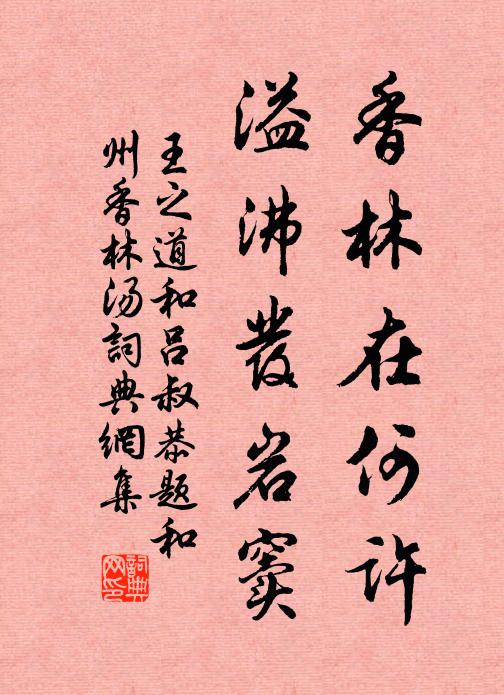 香林在何许
溢沸發岩竇
王之道和吕叔恭题和
州香林汤詞典網集
詞典
网印